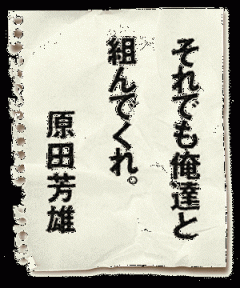 それでも俺達と
組んでくれ。
原田芳雄